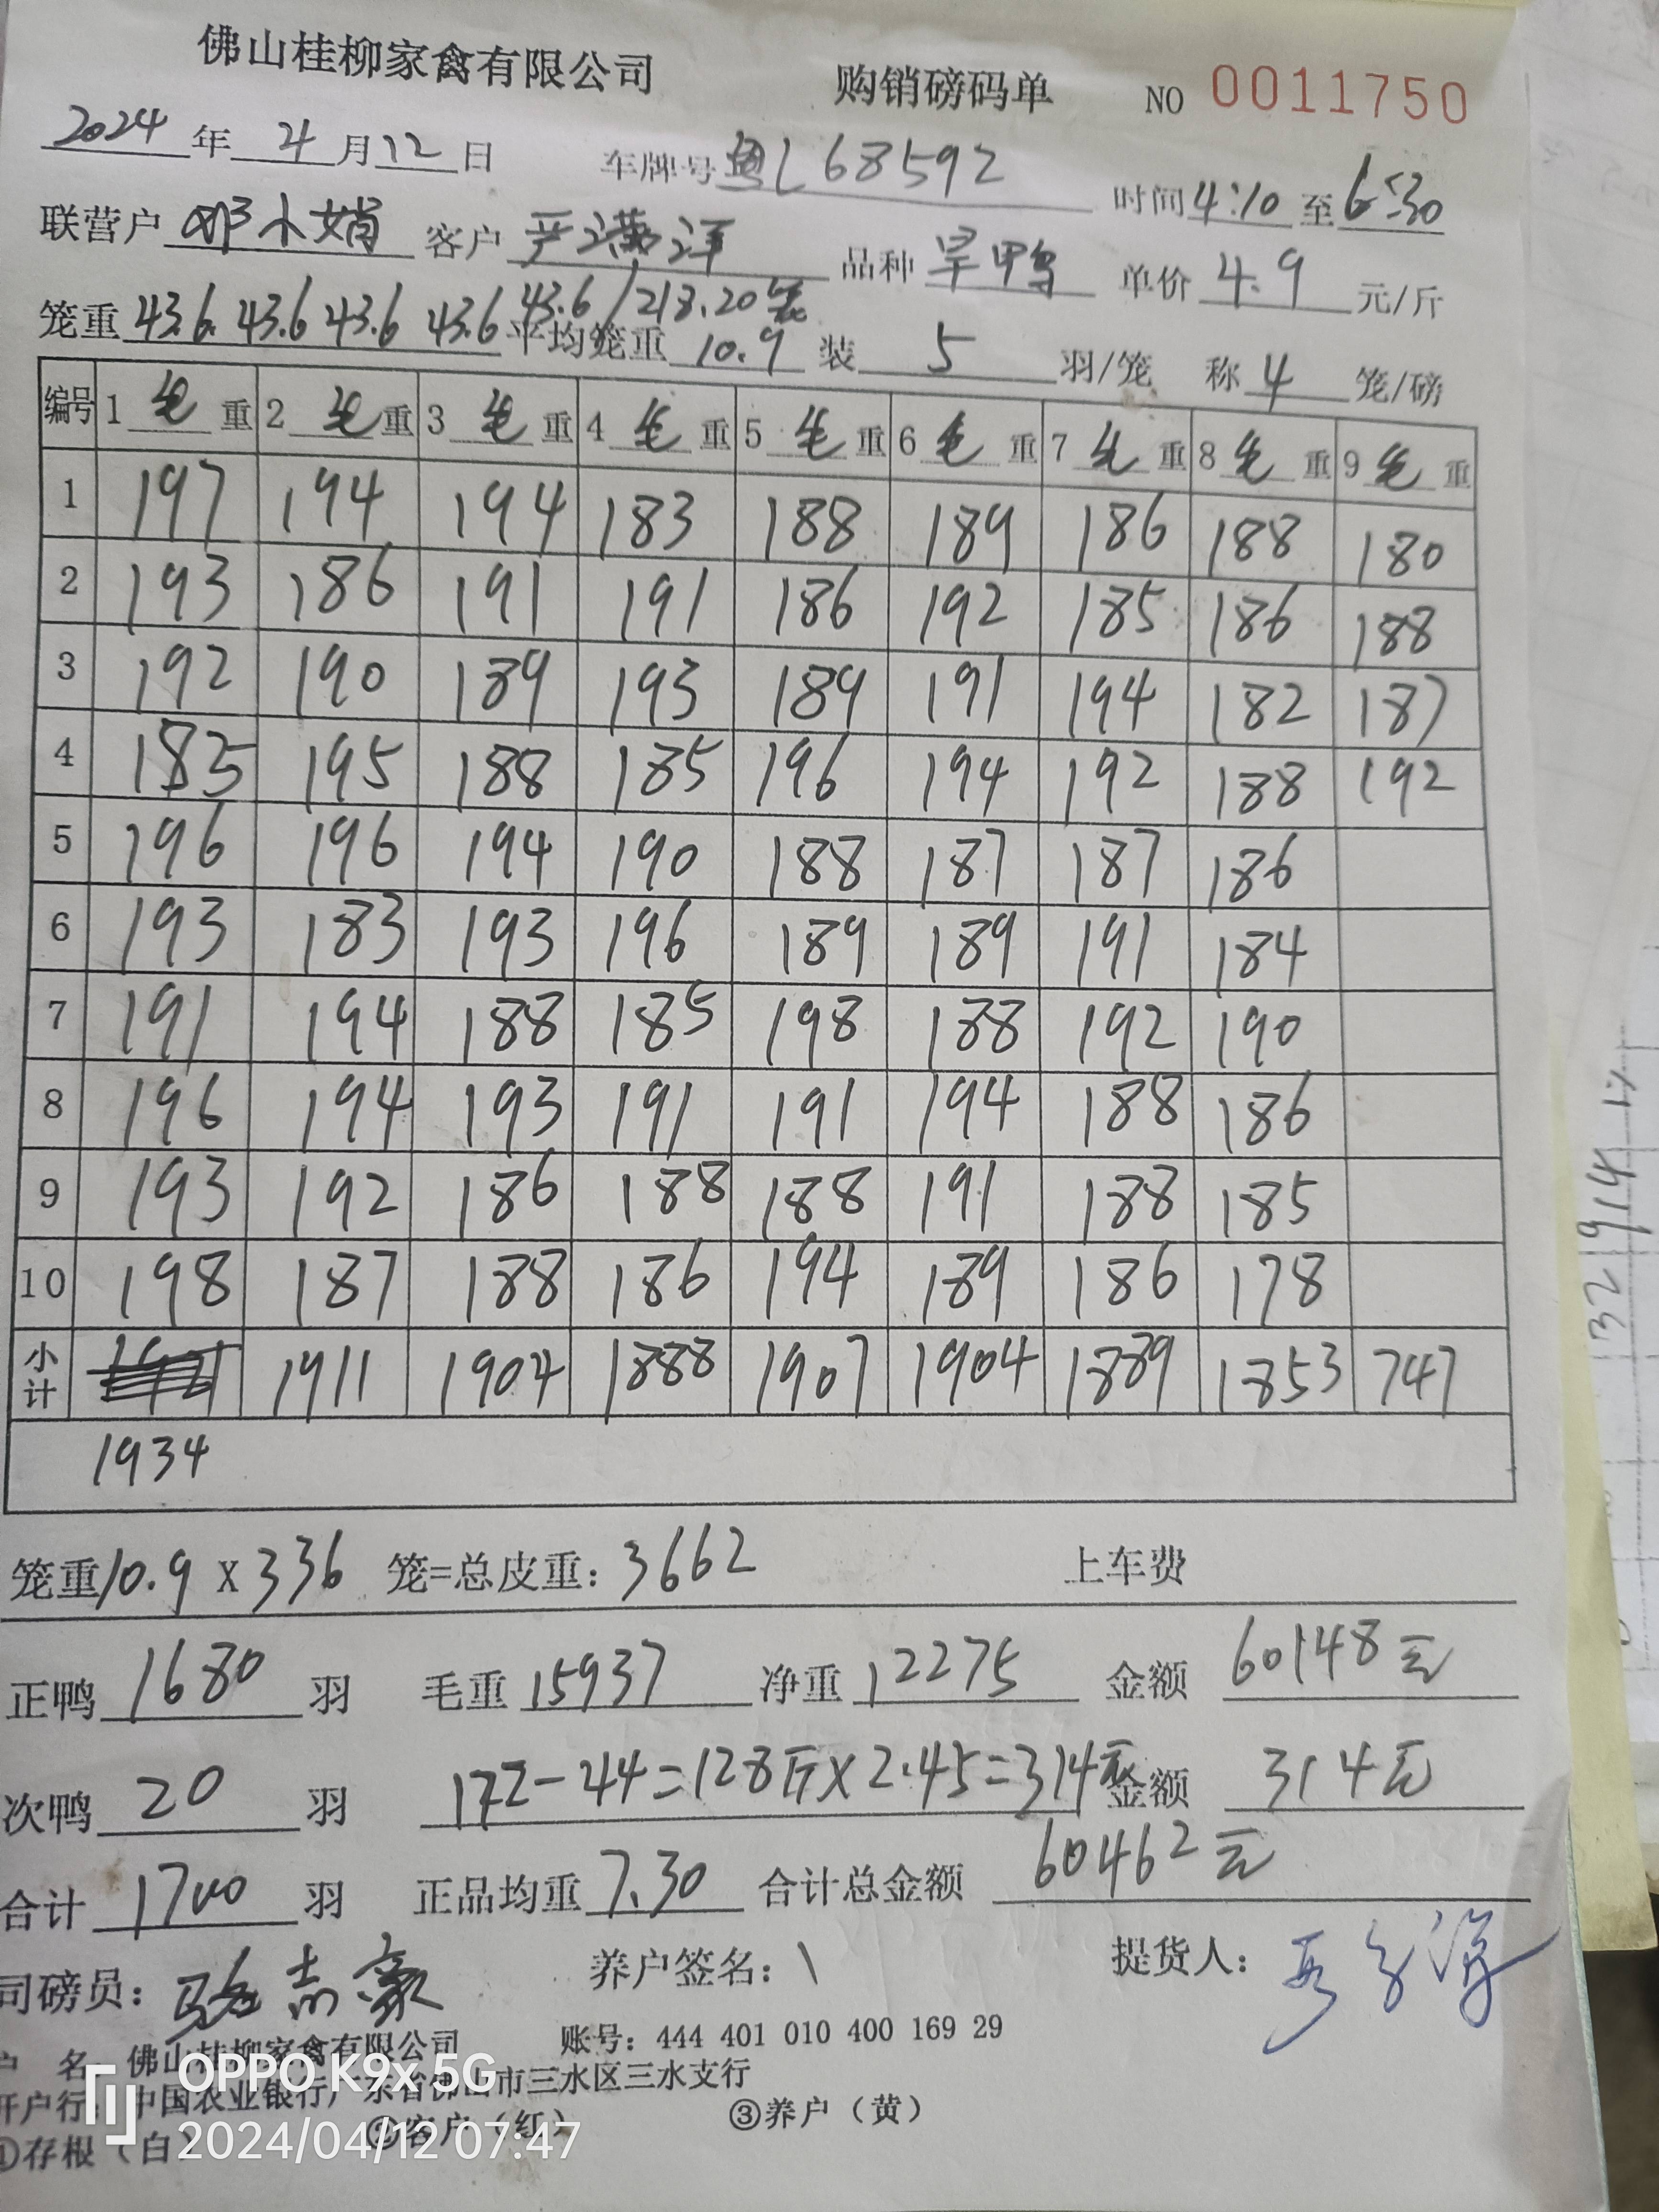 佛山桂柳家禽有限公司 购销磅码单 NO 0011750
2024 年 4 月 12 日 车牌号 粤L68592 时间 4:10 至 6:30
联营户 邓小娟 客户 严满洋 品种 旱鸭 单价 4.9 元/斤
笼重 43.6 43.6 43.6 43.6 43.6/218.20笼 平均笼重 10.9 装 5 羽/笼 称 4 笼/磅
编号 1 毛 重 2 毛 重 3 毛 重 4 毛 重 5 毛 重 6 毛 重 7 毛 重 8 毛 重 9 毛 重
1 197 194 194 183 188 189 186 188 180
2 193 186 191 191 186 192 185 186 188
3 192 190 189 193 189 191 194 182 187
4 185 195 188 185 196 194 192 188 192
5 196 196 194 190 188 187 187 186
6 193 183 193 196 189 189 191 184
7 191 194 188 185 198 188 192 190
8 196 194 193 191 191 194 188 186
9 193 192 186 188 188 191 188 185
10 198 187 188 186 194 189 186 178
小计 1911 1904 1888 1907 1904 1889 1853 747
1934
笼重 10.9 X 336 笼=总皮重: 3662 上车费
正鸭 1680 羽 毛重 15937 净重 12275 金额 60148元
次鸭 20 羽 172-44=128斤X2.45=314元 金额 314元
合计 1700 羽 正品均重 7.30 合计总金额 60462元
司磅员: 骆志豪 养户签名: \ 提货人:
户 名 佛山桂柳家禽有限公司 账号: 444 401 010 400 169 29
开户行 中国农业银行广东省佛山市三水区三水支行
①存根（白） ②客户（红） ③养户（黄）
OPPO K9x 5G
2024/04/12 07:47
1321914